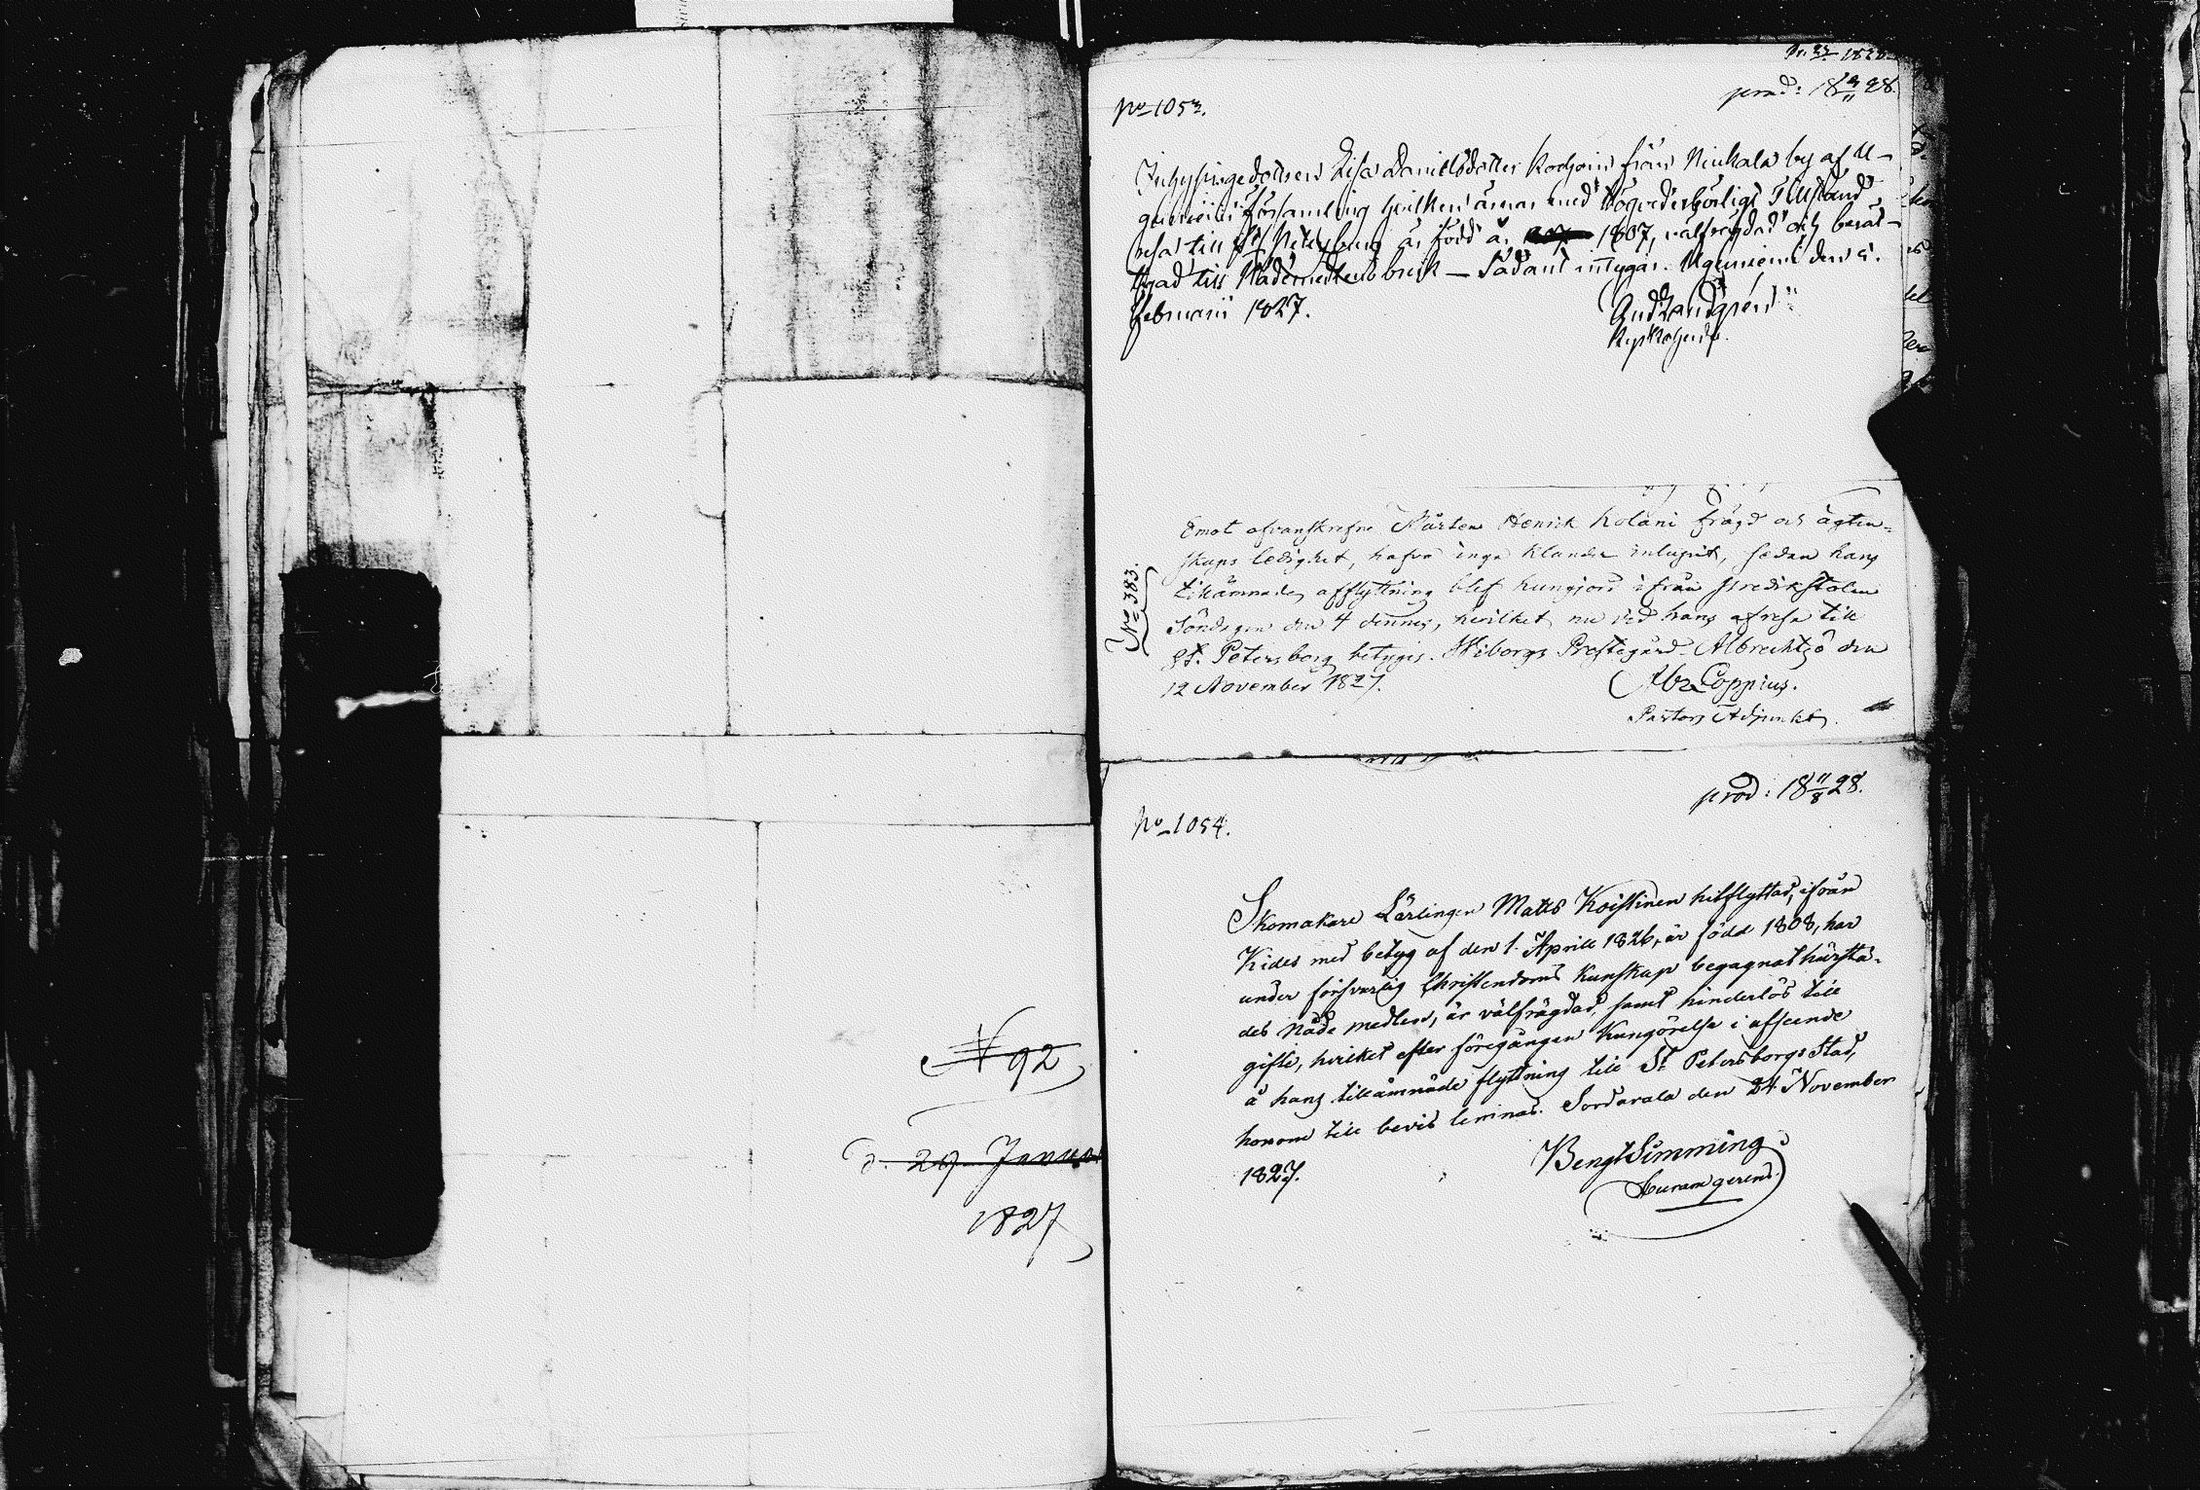 N 92
d. 29 Janua
1827
prod: 18 9/11 28.
No 1053.
Inhysingedottren Lisa Danielsdotter från Niukala by af U-
guniemi församling hvilken ärnar med Högvederbörligt Tillstånd
resa till St Petersburg är född år 1807, välfrägdad och berät-
tigad till Nådemedlens bruk — Sådant intygar. Uguniemi den 5.
februarii 1827.
And Landgren
No 383.
Emot ofvanskrefne Mårten Henrik Kolani frägd och ägten-
skaps ledighet, hafva inga klander inlupit, sedan hans
tillämnade afflyttning blef kungjord ifrån predikstolen
Söndagen den 4 dennes, hvilket nu vid hans afresa till
St. Petersborg betygis. Wiborgs Prestegård Albrechtsö den
12 November 1827.
Abr Poppius.
Pastors Adjunkt.
prod: 18 11/8 28.
No 1054.
Skomakare Lärlingen Matts Koistinen hitflyttad, ifrån
Kides med betyg af den 1. Aprill 1826, är född 1808, har
under försvarlig Christendoms Kunskap begagnat härsta-
des Nåde medlen, är välfrägdad, samt hinderlös till
gifte, hvilket efter föregången Kungörelse i afseende
å hans tillämnade flyttning till St Petersborgs Stad,
honom till bevis lemnas. Sordavala den 24 November
1827.
Bengt Simming
Curam gerens.